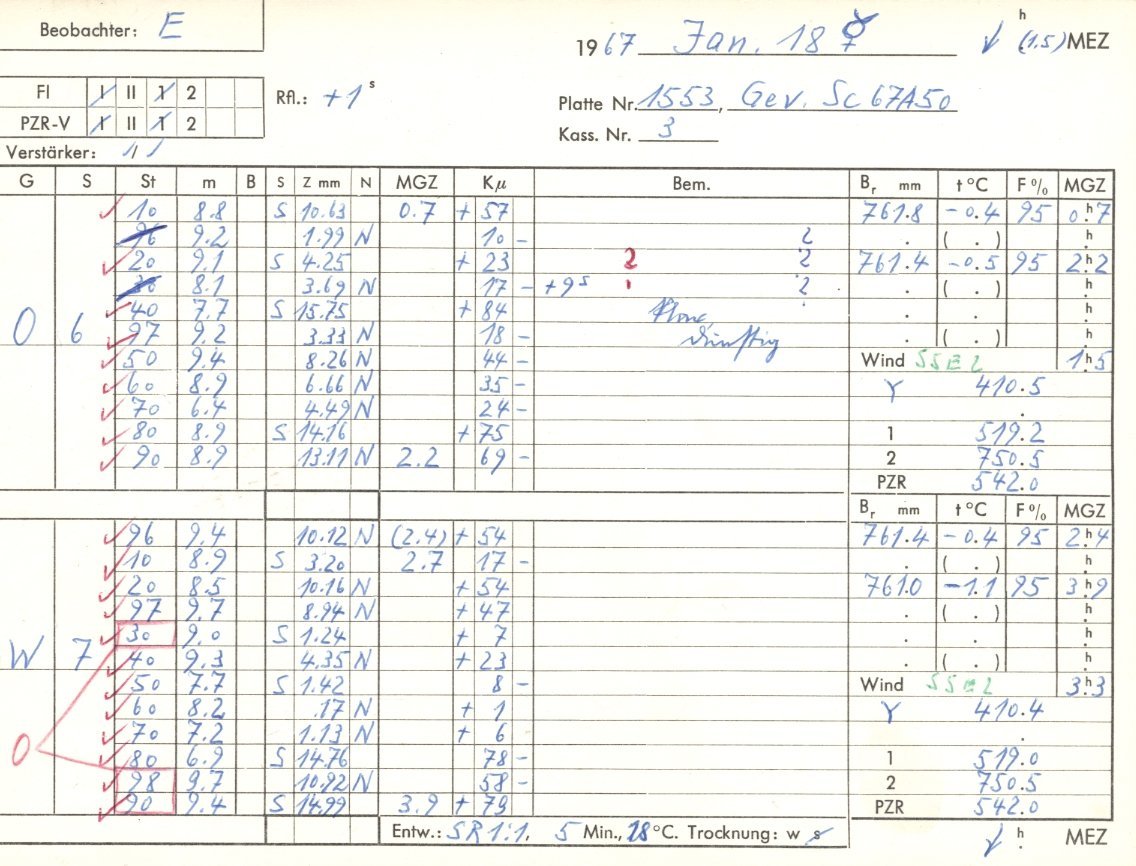 Beobachter: E
1967 Jan. 18 ☿ ↓ h (1.5) MEZ
FI I II 1 2
Rfl.: +1 s
Platte Nr. 1553, Gev. Sc 67A50
PZR-V I II 1 2
Kass. Nr. 3
Verstärker: 1/1
G S St m B S Z mm N MGZ Kμ Bem. Br mm t °C F % MGZ
10 8.8 S 10.63 0.7 + 57 761.8 -0.4 95 0h7
96 9.2 1.99 N 10 - 2 . ( . ) h
20 9.1 S 4.25 + 23 2 2 761.4 -0.5 95 2h2
30 8.1 3.69 N 17 - +9s 2 . ( . ) h
40 7.7 S 15.75 + 84 . . h
O 6 97 9.2 3.33 N 18 - dünstig . ( . ) h
50 9.4 8.26 N 44 - Wind SSE 2 1h5
60 8.9 6.66 N 35 - γ 410.5
70 6.4 4.49 N 24 - .
80 8.9 S 14.16 + 75 1 519.2
90 8.9 13.11 N 2.2 69 - 2 750.5
PZR 542.0
Br mm t °C F % MGZ
96 9.4 10.12 N (2.4) + 54 761.4 -0.4 95 2h4
10 8.9 S 3.20 2.7 17 - . ( . ) h
20 8.5 10.16 N + 54 761.0 -1.1 95 3h9
97 9.7 8.94 N + 47 . ( . ) h
30 9.0 S 1.24 + 7 . . h
W 7 40 9.3 4.35 N + 23 . ( . ) h
50 7.7 S 1.42 8 - Wind SSE 2 3h3
60 8.2 .17 N + 1 γ 410.4
70 7.2 1.13 N + 6 .
O 80 6.9 S 14.76 78 - 1 519.0
98 9.7 10.92 N 58 - 2 750.5
90 9.4 S 14.99 3.9 + 79 PZR 542.0
Entw.: SR 1:1, 5 Min., 18 °C. Trocknung: w s ↓ h MEZ